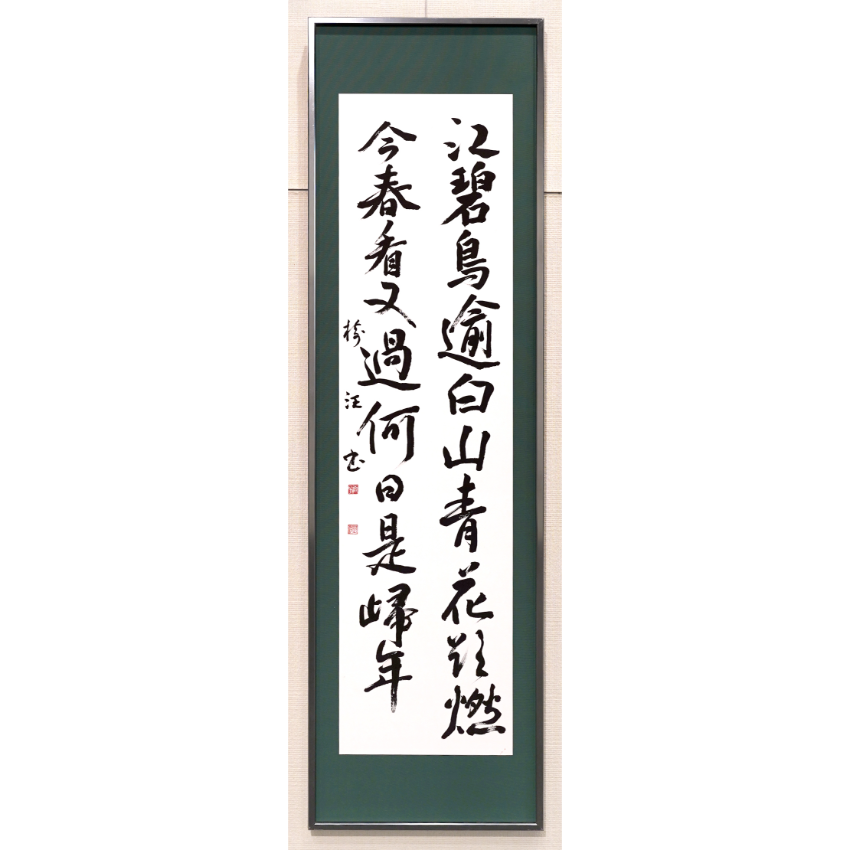 江碧鳥逾白山青花欲燃
今春看又過何日是歸年
汪書